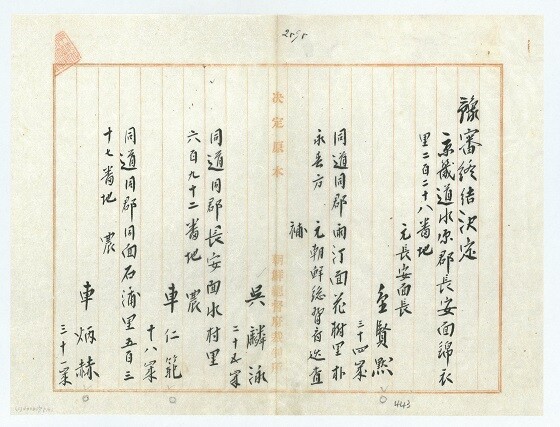 豫審終結決定
京畿道水原郡長安面錦衣
里二百二十八番地
元長安面長
金賢黙
三十四歲
同道同郡雨汀面花樹里朴
永喜方 元朝鮮總督府巡査
補
吳麟泳
二十五歲
同道同郡長安面水村里
六百九十二番地 農
車仁範
十八歲
同道同郡同面石浦里五百三
十七番地 農
車炳赫
三十一歲
決定原本
朝鮮總督府裁判所
443